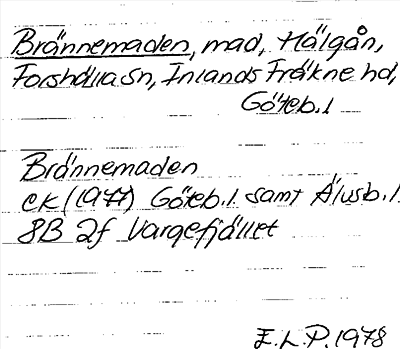 Brännemaden, mad, Hälgån,
Forshälla Sn, Inlands Fräkne hd,
Göteb. l
Brännemaden
EK (1977) Göteb. l. samt Älvsb. l.
8B 2f Vargefjället
E.L.P. 1978